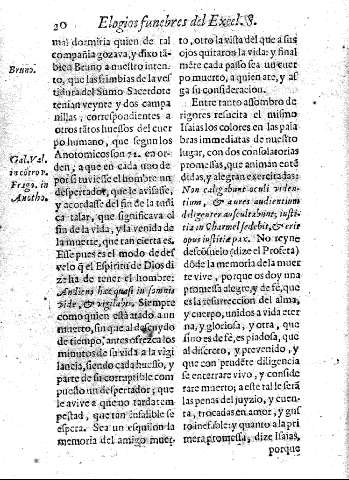 20 Elogios funebres del Excel. S.
mal dormiria quien de tal
compañia gozava, y dixo tã-
bien Bruno a nuestro inten-
to, que las fimbias de la ves
tidura del Sumo Sacerdote
tenian veynte y dos campa
nillas, correspondientes a
otros tãtos huessos del cuer
po humano, que segun los
Anotomicos son 72. en or-
den, a que en cada uno de
por si tuviesse el hombre un
despertador, que le avisasse,
y acordasse del fin de la tu-
ca talar, que significava el
fin de la vida, y la venida de
la muerte, que tan cierta es.
Esse pues es el modo de des
velo q̃ el Espiritu de Dios di
ze ha de tener el hombre:
Audiens hæc quasi in somnio
vidi, & vigilabis. Siempre
como quien está atado a un
muerto, sin que al desnudo
de tiempo, antes ofrezca los
minutos de su vida a la vigi
lancia, siendo cada huesso, y
parte de su corruptible com
puesto un despertador, que
le avive a q̃ no tarde tem-
pestad, que tan infalible se
espera. Sea un esquilon la
memoria del amigo muer-
Bruno.
Gal. Val.
in corron.
Frago. in
Anotho.
to, otro la vista del que a sus
ojos quitaron la vida: y final
mẽte cada passo sea un cuer
po muerto, a quien ate, y as
ga su consideracion.
Entre tanto assombro de
rigores resucita el mismo
Isaias los colores en las pala
bras immediatas de nuestro
lugar, con dos consolatorias
promessas, que animan entẽ
didas, y alegran exercitadas:
Non caligabunt oculi viden-
tium, & aures audientium
diligenter auscultabunt; iusti-
tia in Charmel sedebit, & erit
opus iustitiæ pax. No reyne
descõsuelo (dize el Profeta)
dõde la memoria de la muer
te vive, porque os doy una
promessa alegre, y de fé, que
es la resurreccion del alma,
y cuerpo, unidos a vida eter
na, y gloriosa, y otra, que
sino es de fé, es piadosa, que
al discreto, y prevenido, y
que con prudẽte diligencia
se enterrare vivo, y conside
rare muerto; a este tal le serã
las penas del juyzio, y cuen-
ta, trocadas en amor, y gus
to inefable: y quanto a la pri
mera promessa, dize Isaias,
porque